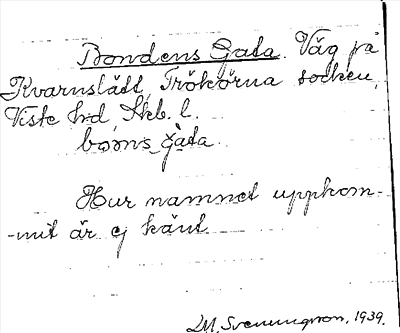 Bondens Gata. Väg på
Kvarnslätt, Trökörna socken,
Viste hd, Skb. l.
boo̅ns g̀ata.
Hur namnet uppkom-
-mit är ej känt.
M. Svenungsson, 1939.